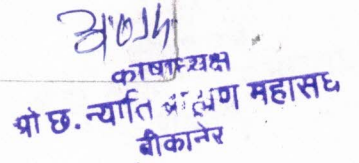 कोषाध्यक्ष
श्री छ. न्याति ब्राह्मण महासंघ
बीकानेर